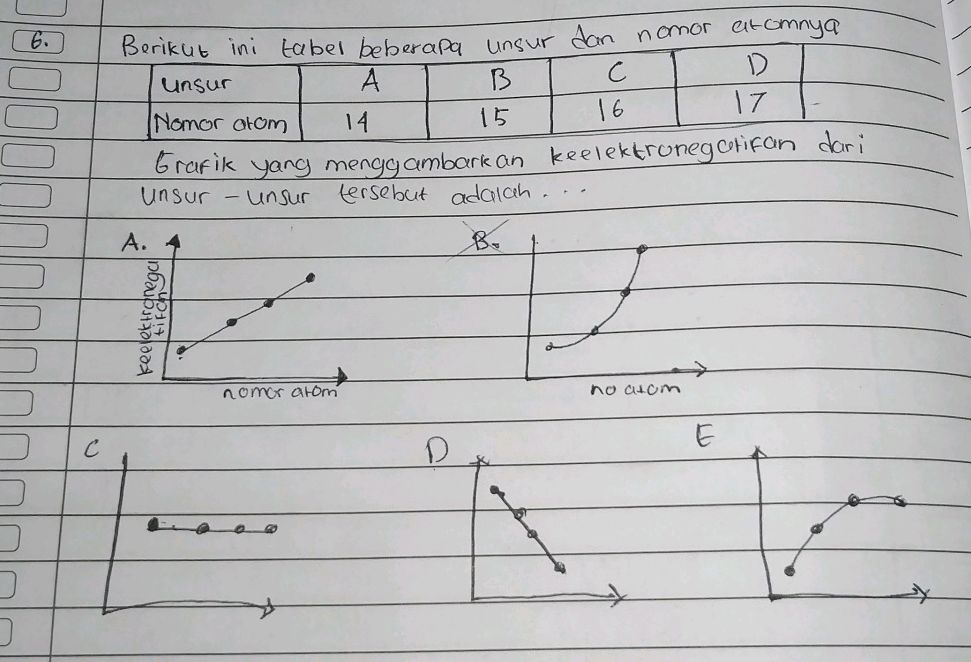 6. Berikut ini tabel beberapa unsur dan nomor atomnya
unsur A B C D
Nomor atom 14 15 16 17
Grafik yang menggambarkan keelektronegatifan dari
unsur-unsur tersebut adalah...
A. B.
keelektronega
tifan
nomor atom no atom
C D E